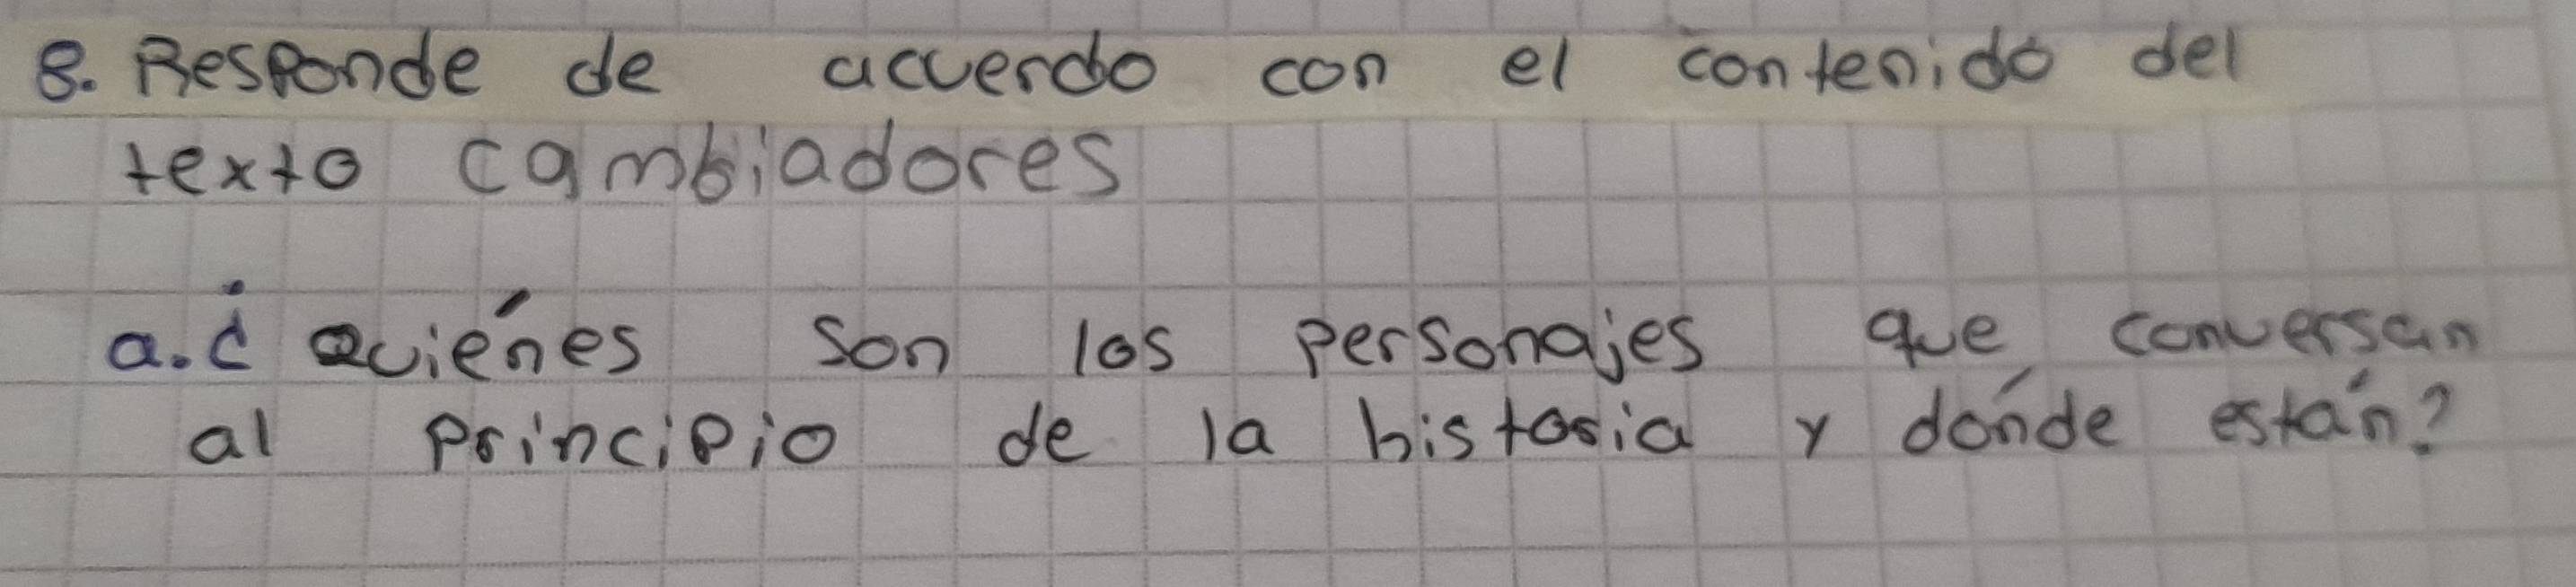 8. Responde de acuerdo con el contenido del
texto cambiadores
a. ¿Quiénes son los personajes que conversan
al principio de la historia y dónde están?